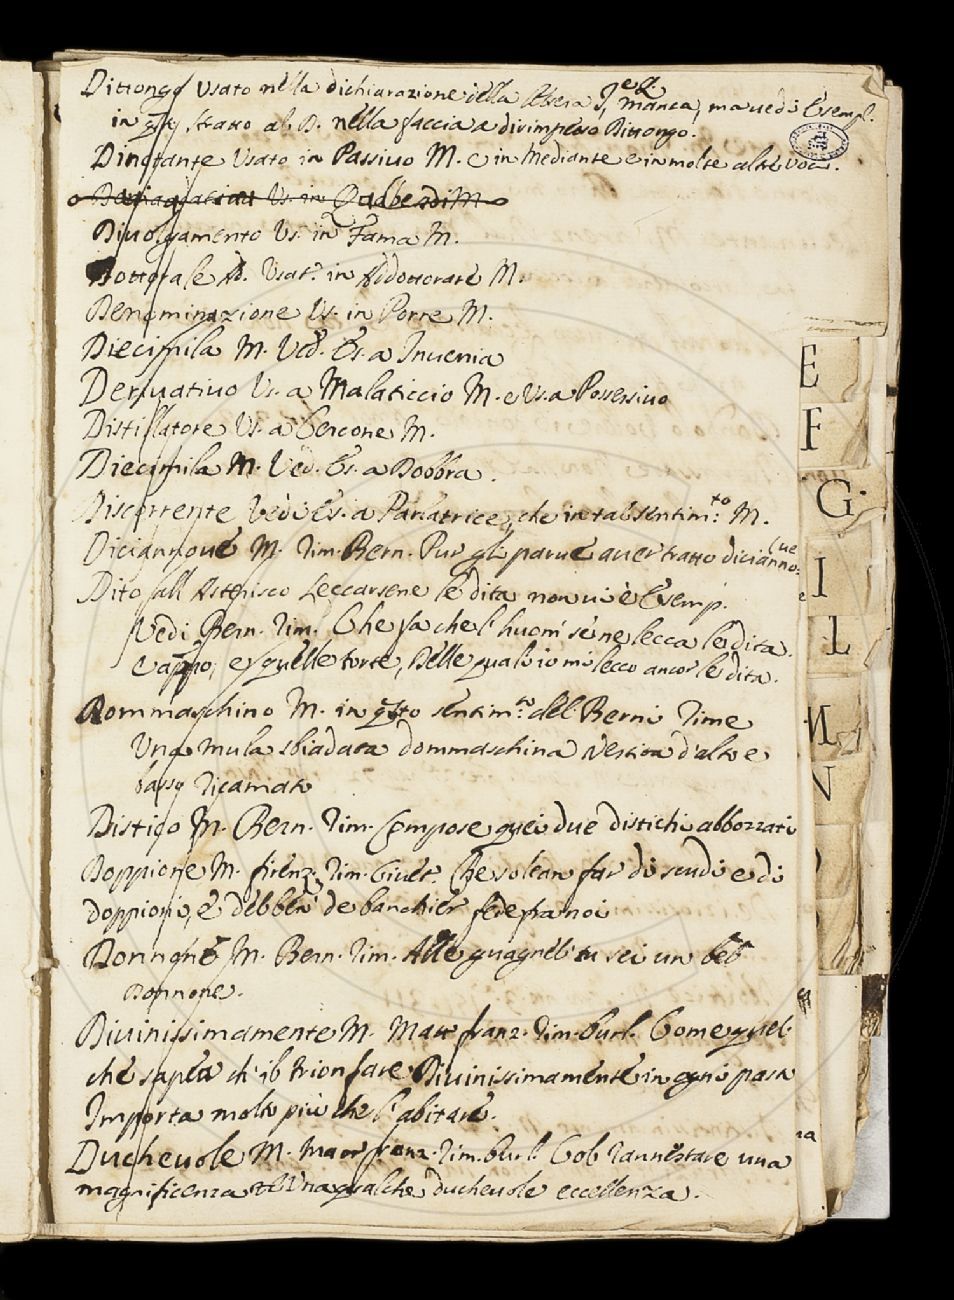 Dittongo Usato nella dichiarazione della lettera I, e Z. manca, ma vedi Esempl.
in qsto stratto al D. nella faccia a dirimpetto Dittongo.
Dinotante Usato in Passivo M. e in Mediante e in molte altre voci.
Us. in M.
Divolgamento Us. in Fama M.
Dottorale Us. Usat. in Addottorare M.
Denominazione Us. in Porre M.
Diecimila M. Ved. Es. a Invenia
Derivativo Us. a Malaticcio M. e Us. a Possessivo
Distillatore Us. a Cercone M.
Diecimila M. Ved. Es. a Dobbra.
Discorrente Vedi Es. a Parlatrice, che in tal sentim.to M.
Diciannove M. Rim. Bern. Pur gli parve aver tratto dicianno:
ve
Dito all Asterisco Leccarsene le dita non vi è Esemp.
Vedi Bern. Rim. Che fa che l'huom se ne lecca le dita.
e appo, e quelle torte, Delle quali io mi lecco ancor le dita.
Dommaschino M. in qsto sentim.to del Berni Rime
Una mula sbiadata dommaschina Vestita d'alto e
basso ricamato
Distico M. Bern. Rim. Compose quei due distichi abbozzati
Doppione M. firenz. Rim. Che solean far di scudi e di
doppioni, e debbon de banchier fede fra noi
Donnone M. Bern. Rim. Alle guagnel tu sei un bel
Donnone.
Divinissimamente M. Matt. franz. Rim. burl. Come quel
che sapea ch'il trionfare Divinissimamente in ogni parte
Importa molto più che l'abitare.
Duchevole M. Matt. franz. Rim. burl. Col rannestare una
magnificenza Una qualche duchevole eccellenza.
E
F
G
I
L
M
N